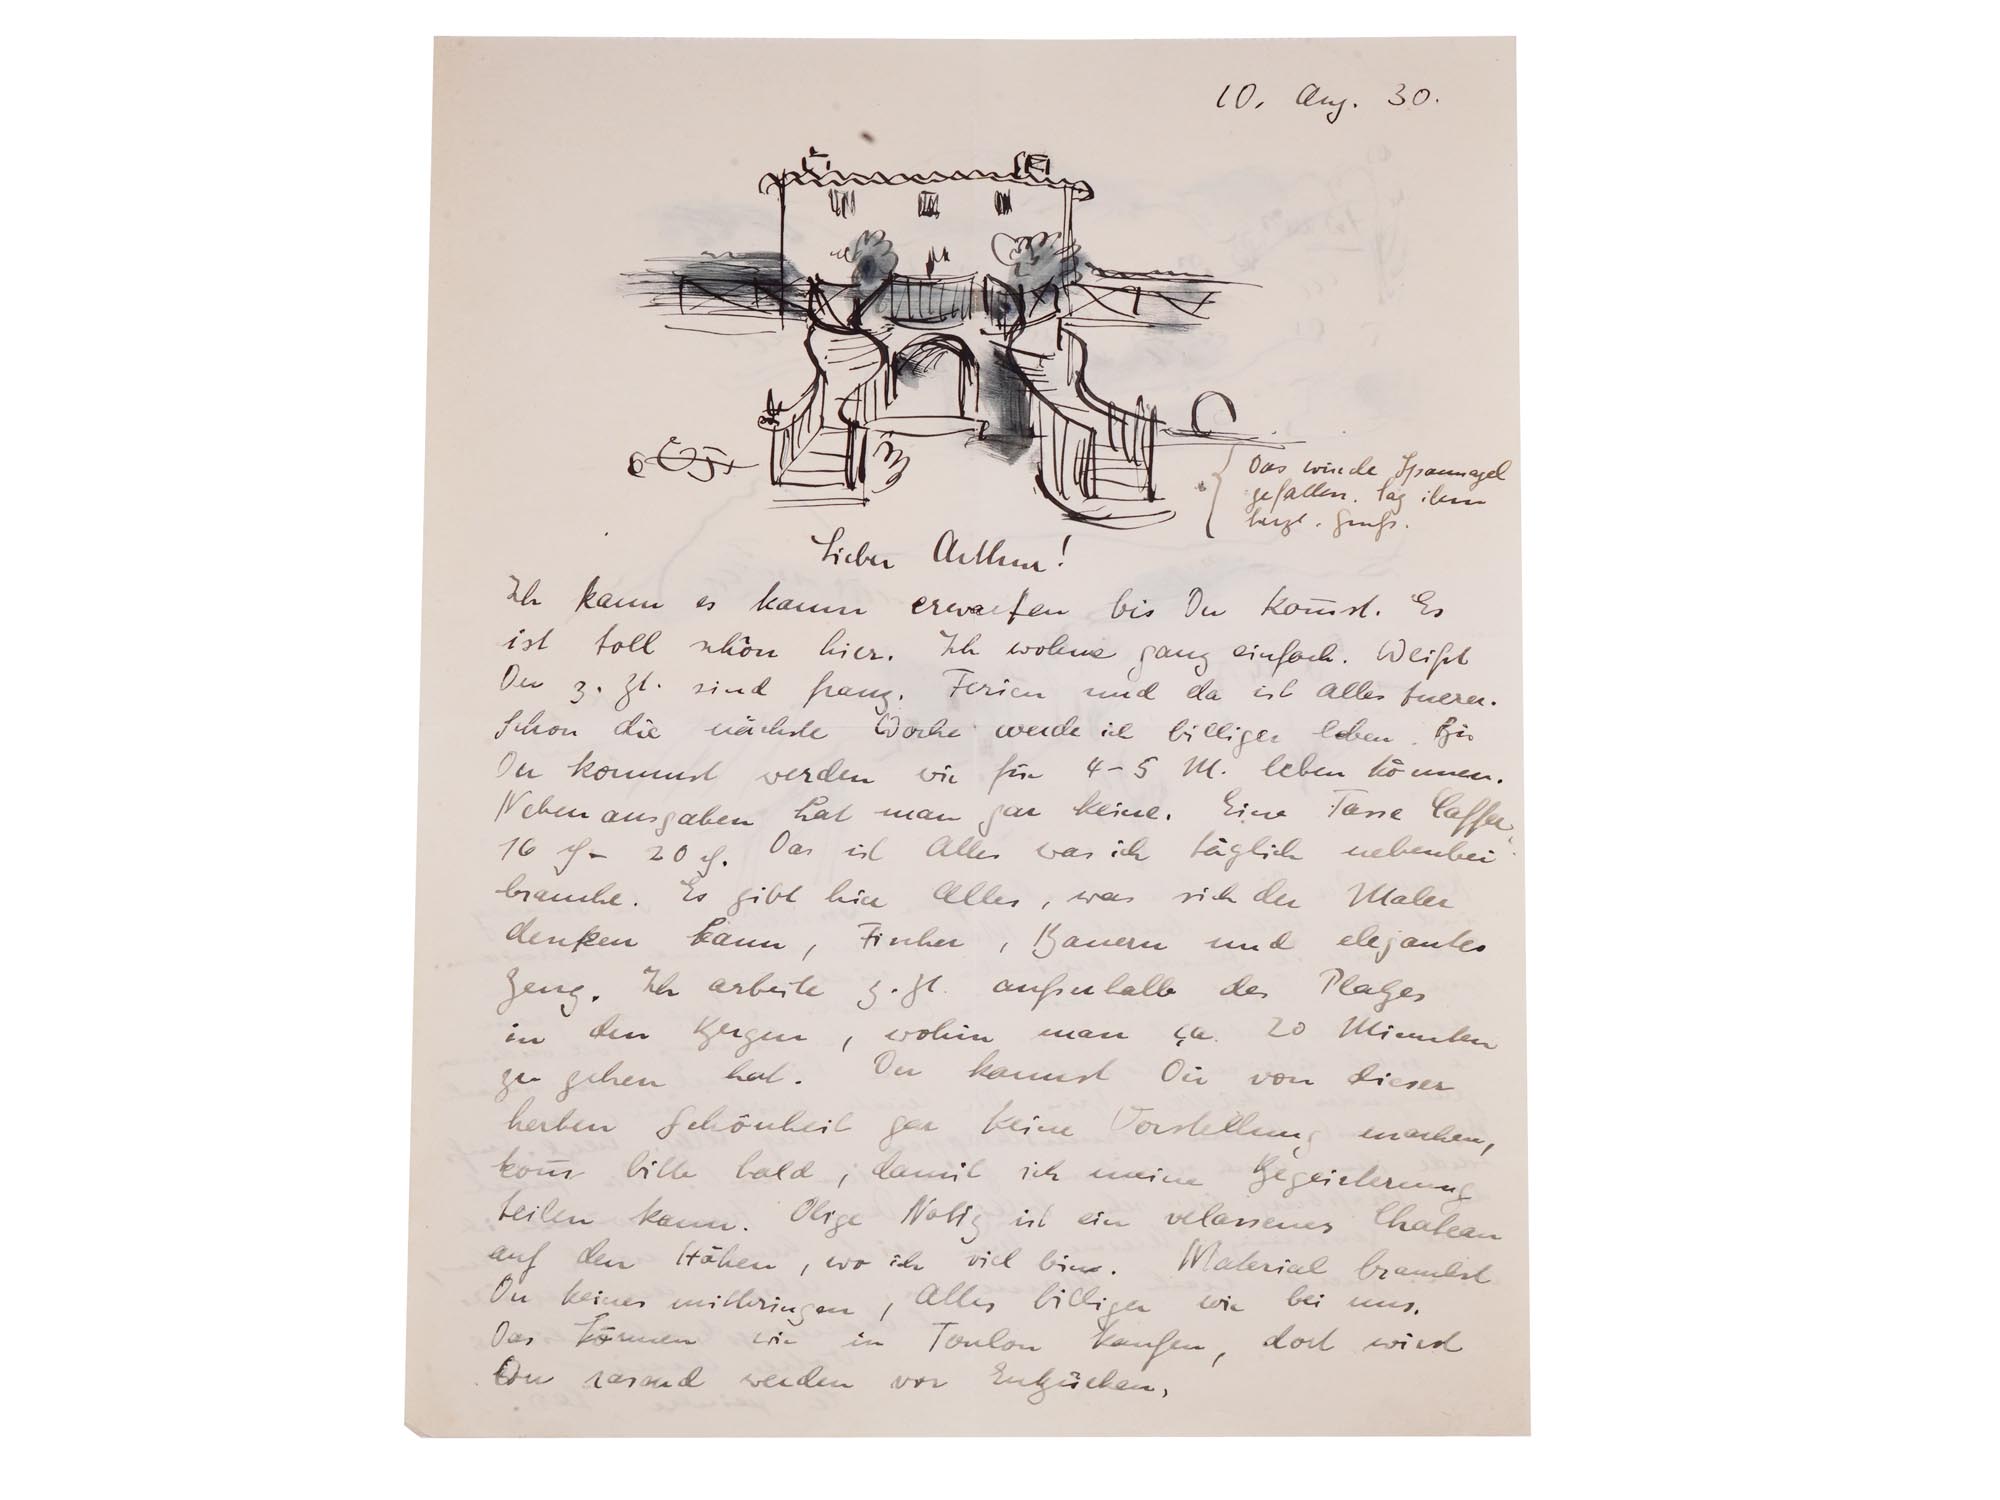 10. Aug. 30.
Das würde Spannagel
gefallen. Sag ihm
herzl. Gruß.
Lieber Arthur!
Ich kann es kaum erwarten bis Du kom̄st. Es
ist toll schön hier. Ich wohne ganz einfach. Weißt
Du z. Zt. sind franz. Ferien und da ist Alles teurer.
Schon die nächste Woche werde ich billiger leben. Bis
Du kommst werden wir für 4-5 M. leben können.
Nebenausgaben hat man gar keine. Eine Tasse Caffee
16 ₰ - 20 ₰. Das ist Alles was ich täglich nebenbei
brauche. Es gibt hier Alles, was sich der Maler
denken kann, Fischer, Bauern und elegantes
Zeug. Ich arbeite z. Zt. außerhalb des Platzes
in den Bergen, wohin man ca. 20 Minuten
zu gehen hat. Du kannst Dir von dieser
herben Schönheit gar keine Vorstellung machen,
kom̄ bitte bald, damit ich meine Begeisterung
teilen kann. Obige Notiz ist ein velassenes Chateau
auf den Höhen, wo ich viel bin. Material brauchst
Du keines mitbringen, Alles billiger wie bei uns.
Das können wir in Toulon kaufen, dort wirst
Du rasend werden vor Entzücken.